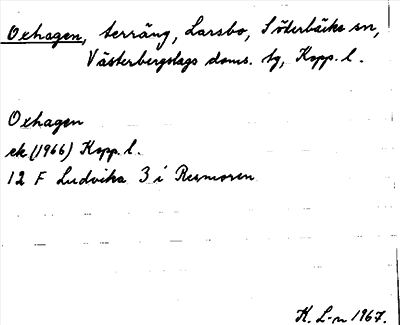 Oxhagen, terräng, Larsbo, Söderbärke sn,
Västerbergslags doms. tg, Kopp. l.
Oxhagen
ek. (1966) Kopp. l.
12 F Ludvika 3 i Resmoren
K. L-n 1967.